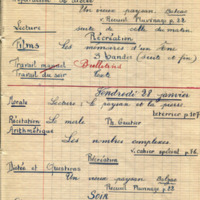 Un vieux paysan Balzac
Recueil Mauvage p. 22
Lecture suite de celle du matin
Récréation
Films Les mémoires d'un âne
(suite et fin)
Travail manuel Bulletins
Travail du soir
Vendredi 28 janvier
Morale Lecture : le paysan et la pierre
Leterrier p. 307
Récitation Le merle Th. Gautier
Arithmétique
Les nombres complexes
Cahier spécial p.
Récréation
Dictée et Questions Un vieux paysan Balzac
Recueil p. 22
Soir